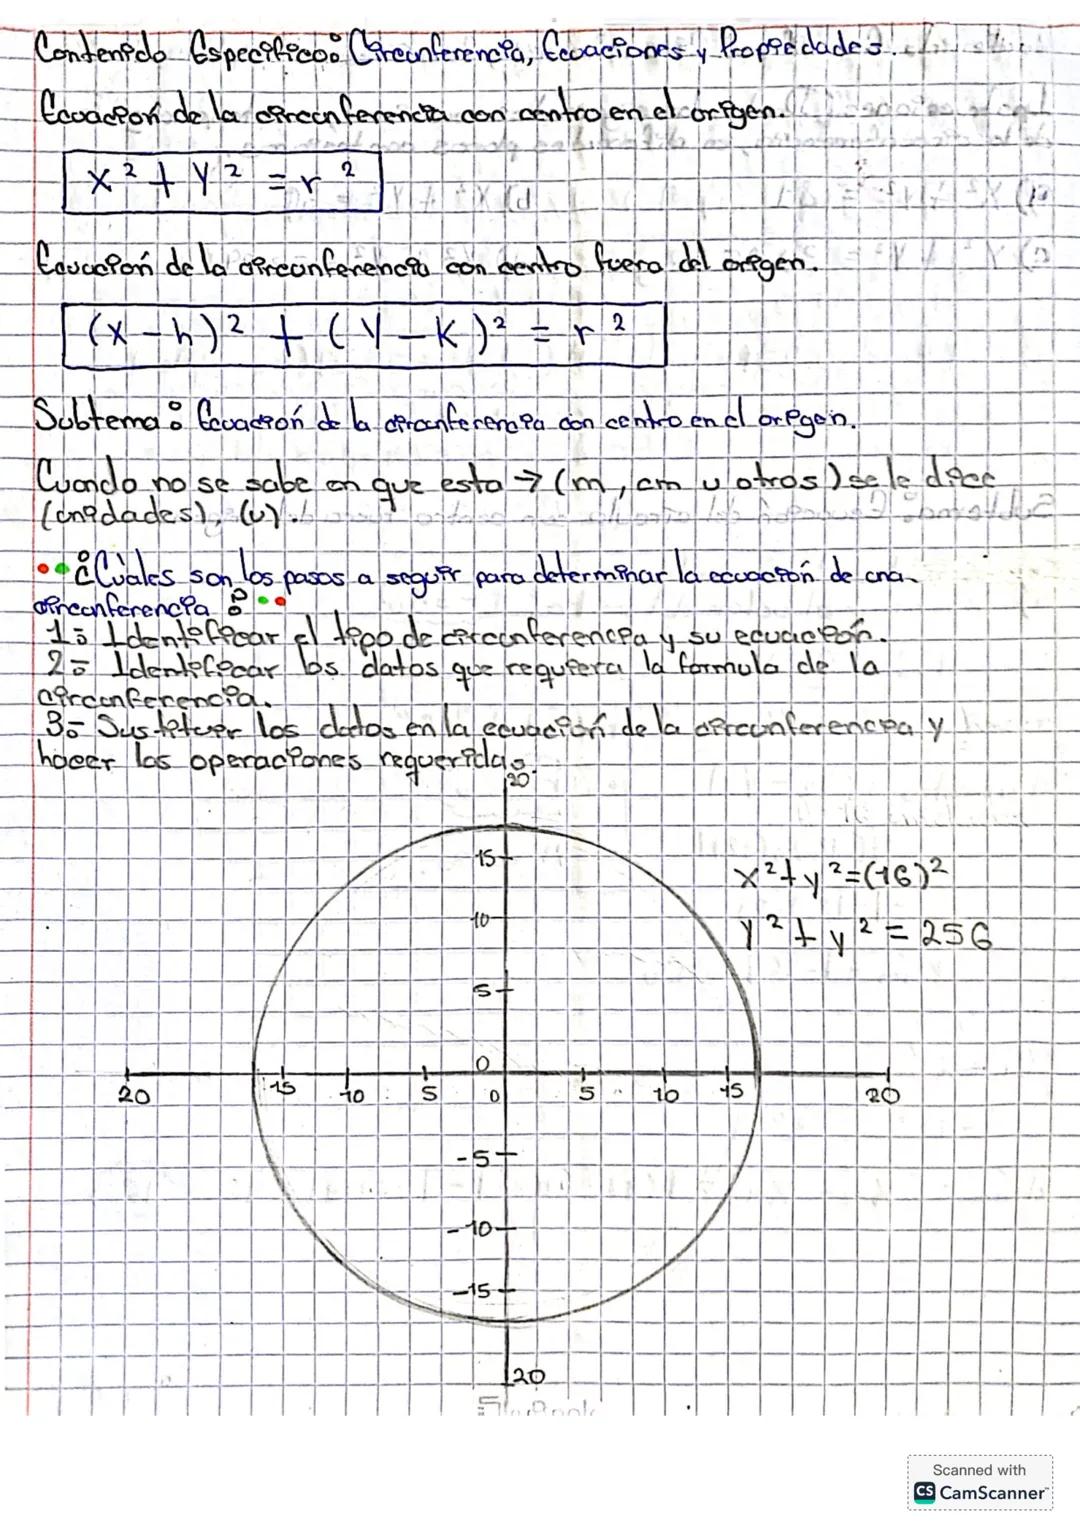 Contenido Específico: Circunferencia, Ecuaciones y Propiedades.
Ecuación de la circunferencia con centro en el origen.
x² + y² = r²
Ecuación de la circunferencia con centro fuera del origen.
(x - h)² + (y - k)² = r²
Subtema: Ecuación de la circunferencia con centro en el origen.
Cuando no se sabe en que esta → (m, cm u otros) se le dice
(unidades), (u).
¿Cuáles son los pasos a seguir para determinar la ecuación de una
circunferencia?
1- Identificar el tipo de circunferencia y su ecuación.
2- Identificar los datos que requiera la formula de la
circunferencia.
3- Sustituir los datos en la ecuación de la circunferencia y
hacer las operaciones requeridas.
20
15
10
5
0
x² + y² = (16)²
y² + y² = 256
20 15 10 5 0 5 10 15 20
-5
-10
-15
20
Scanned with
CS CamScanner